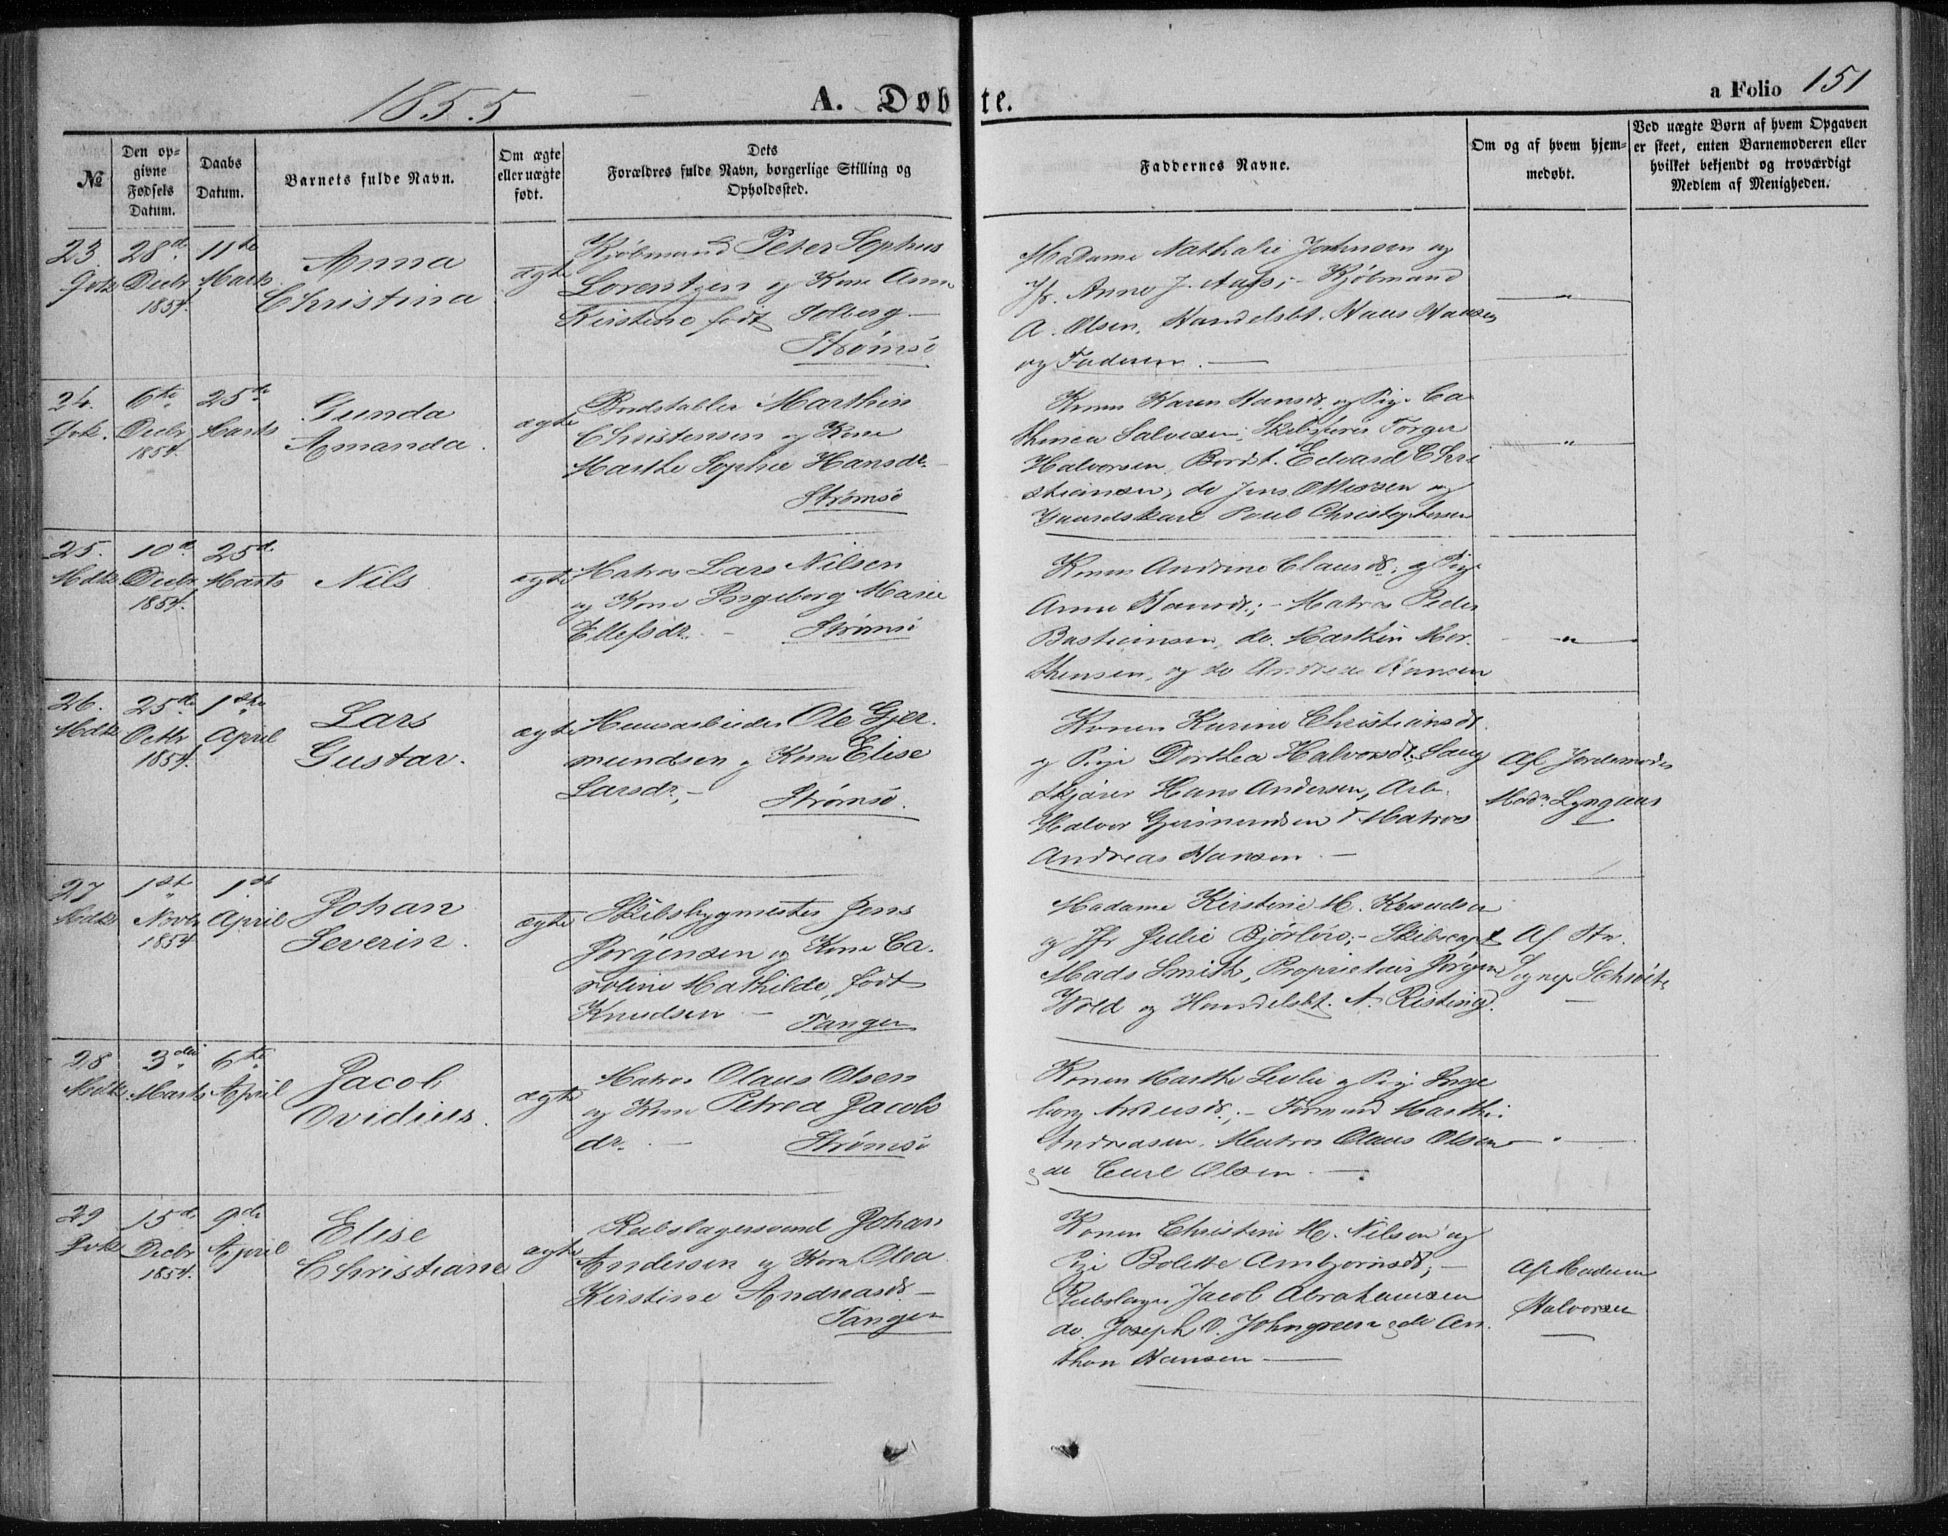 1855
A. Døbte.
a Folio 151
№
Den opgivne Fødsels Datum.
Daabs Datum.
Barnets fulde Navn.
Om ægte eller uægte født.
Dets Forældres fulde Navn, borgerlige Stilling og Opholdssted.
Faddernes Navne.
Om og af hvem hjemmedøbt.
Ved uægte Børn af hvem Opgaven er skeet, enten Barnemoderen eller hvilket bekjendt og troværdigt Medlem af Menigheden.
23. 28de 11te
Decbr Marts
1854.
Anna
Christina
ægte
Kjøbmand Peter Sophus
Lorentzen og Kone Anne
Kirstine født
Strømsø
Madame Nathalie Johnsen og
Jfr. Anne J. Aas; - Kjøbmand
A. Olsen, Handelsbt. Hans Hansen
og Faderen. —
24. 6te 25de
Decbr Marts
1854.
Gunda
Amanda.
ægte
Bordstabler Marthin
Christensen og Kone
Marthe Sophie Hansdr. -
Strømsø
Konen Karen Hansdr. og Pige Ca
Salvesen; Torger
Halvorsen, Bordst. Edvard Chri
stiansen, do Jens Ottersen og
Gaardskarl Poul Christophersen
25. 10de 25de
Mdk Decbr Marts
1854.
Nils
ægte
Matros Lars Nilsen
og Kone Ingeborg Marie
Ellefsdr. - Strømsø
Konen Andrine Clausdr. og Pige
Anne Hansdr.; - Matros Peder
Bastiansen, do. Marthin Mor
thensen, og do Andreas Hansen
26. 25de 1ste
Mdk Octbr April
1854.
Lars
Gustav.
ægte
Ole Gjer
mundsen og Kone Elise
Larsdr., - Strømsø.
Konen Karine Christiansdr.
og Pige Dorthea Halvorsdr., Saug
skjærer Hans Andersen, Arb.
Halvor Gjermundsen & Matros
Andreas Hansen. —
Af Jordemoder
Madm Lyngaas
27 1st 1st
Mdk Novbr April
1854
Johan
Severin.
ægte
Skibsbygmester Jens
Jørgensen og Kone Ca
roline Mathilde, født
Knudsen - Tangen
Madame Kirstine M. Knudsen
og Jfr Julie Bjørløw; - Skibscapt
Mads Smith, Proprietair Jørgen
Wold og Handelsbt. A. Risting.
Af Str.
28 3die 6te
Mdk Marts April
Jacob
Ovidius.
ægte
Matros Olaus Olsen
og Kone Petrea Jacobs
dr. — Strømsø
Konen Marthe Levlie og Pige Inge
borg Andersdr.; - Formand Marthi
Andreasen, Matros Olaus Olsen
og do Carl Olsen. —
29 15de 9de
Decbr April
1854.
Elise
Christiane
ægte
Rebslagersvend Johan
Andersen og Kone Olea
Kirstine Andreasdr. -
Tangen
Konen Christine M. Nilsen og
Pige Bolette Ambjørnsdr; -
Rebslager Jacob Abrahamsen
do. Joseph O. Johngreen og do An
thon Hansen —
Af Madame
Halvorsen